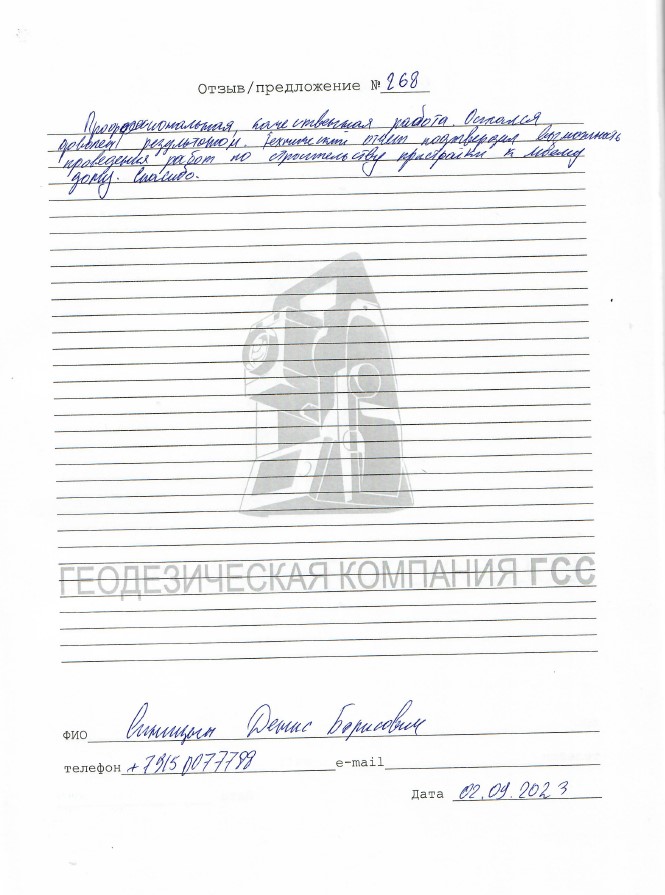 Отзыв/предложение № 268
Профессиональная, качественная работа. Остался
доволен результатом. Технический отчет подтвердил возможность
проведения работ по строительству пристройки к моему
дому. Спасибо.
ГЕОДЕЗИЧЕСКАЯ КОМПАНИЯ ГСС
ФИО Синицын Денис Борисович
телефон +7915 e-mail
Дата 02.09.2023